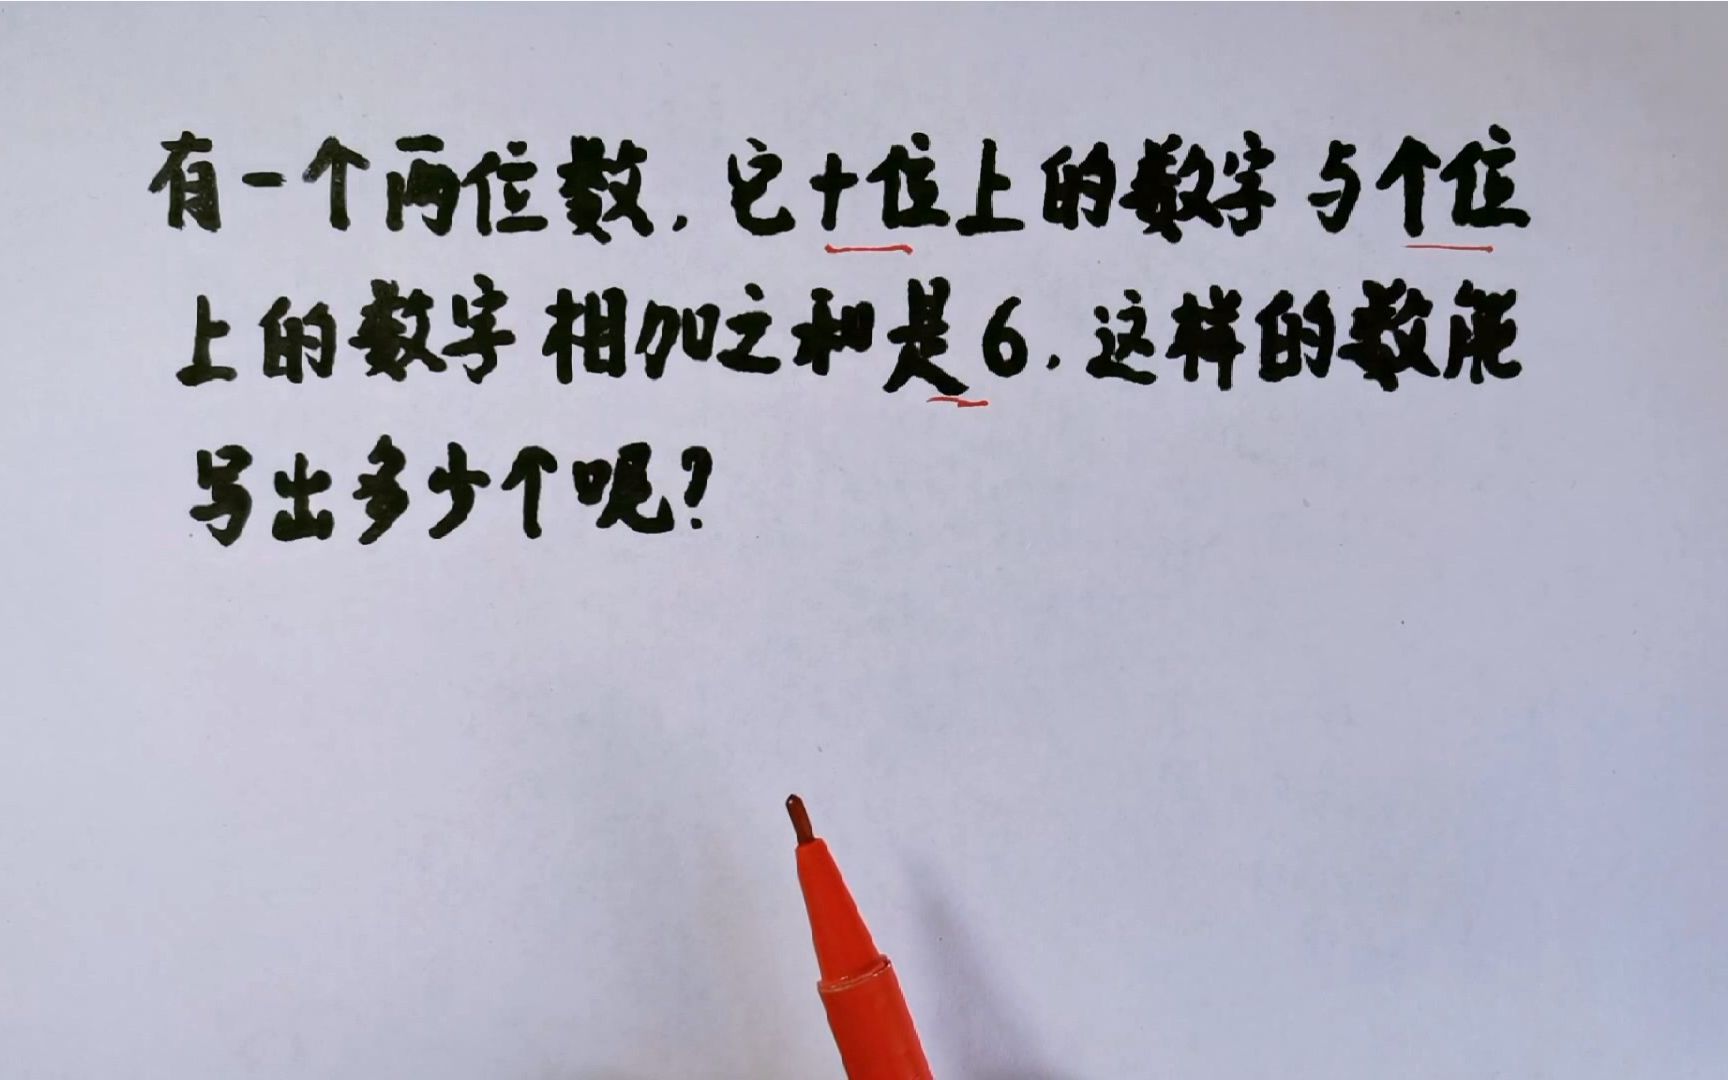 有一个两位数，它十位上的数字与个位
上的数字相加之和是6，这样的数能
写出多少个呢？